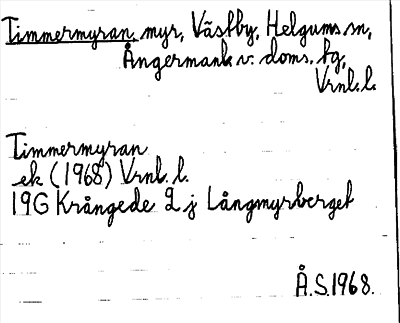 Timmermyran, myr, Västby, Helgums sn,
Ångermanl. v. doms. fg,
Vrnl. l.
Timmermyran
ek (1968) Vrnl. l.
19G Krångede 2 j Långmyrberget
Å.S. 1968.